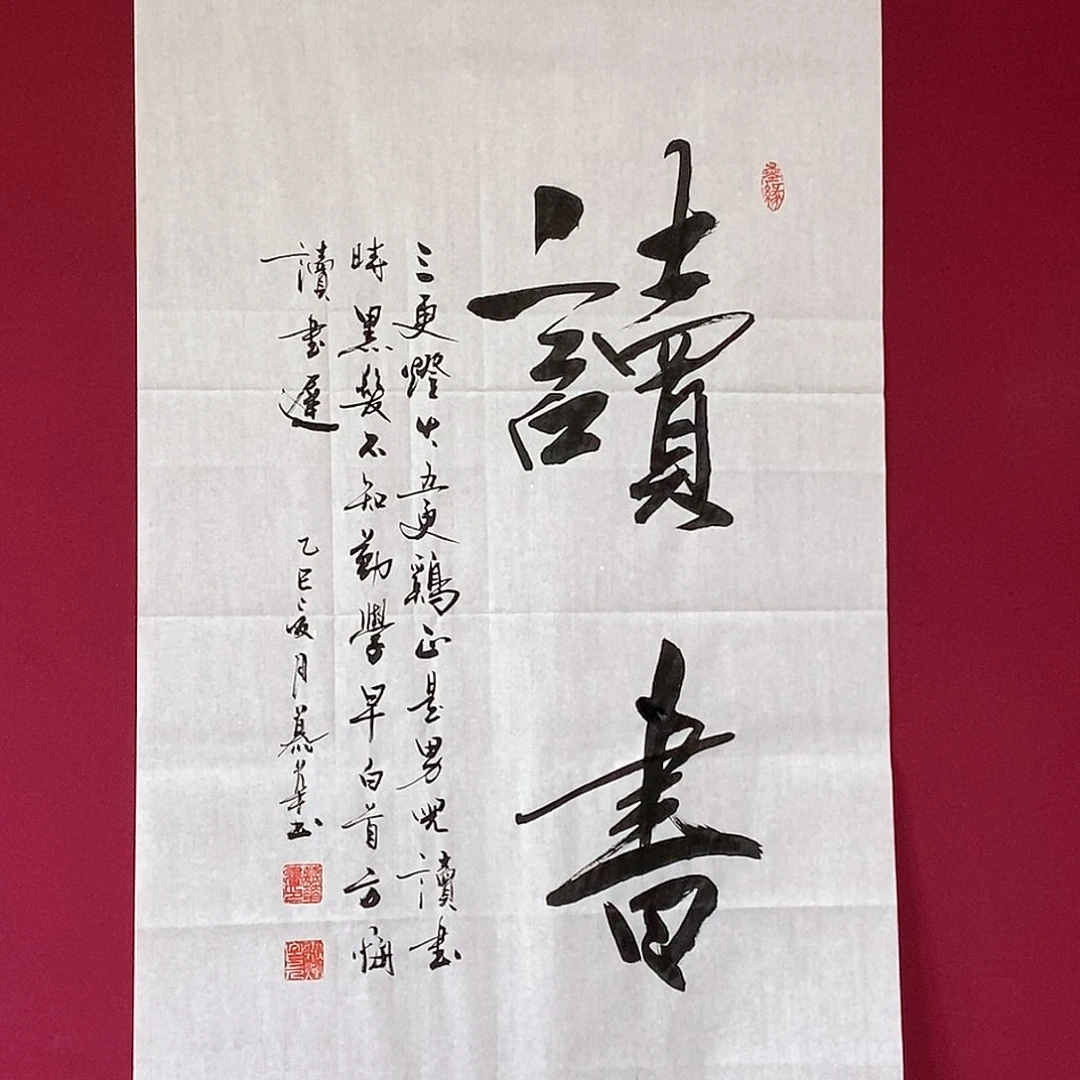 讀書
三更燈火五更鷄正是男児讀書
時黑髮不知勤學早白首方悔
讀書遲
乙巳之夏月慕華书
墨缘